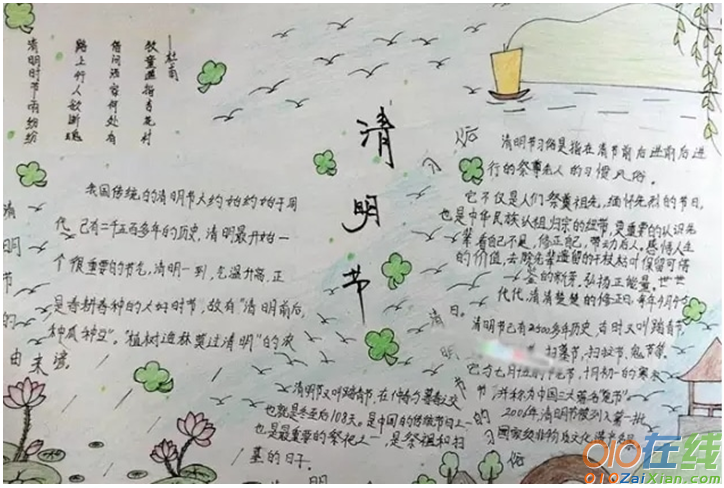 清明时节雨纷纷
路上行人欲断魂
借问酒家何处有
牧童遥指杏花村
杜甫
清明节
我国传统的清明节大约始约始于周
代，已有二千五百多年的历史，清明最开始一
个很重要的节气，清明一到，气温升高，正
是春耕春种的大好时节，故有“清明前后，
种瓜种豆”。“植树造林莫过清明”的农
清明节的由来
习俗
清明节习俗是指在清节前后进前后进
行的祭尊先人的习惯风俗。
它不仅是人们祭奠祖先，缅怀先烈的节日，
也是中华民族认祖归宗的纽带，更重要的认识先
辈看自己不足，修正自己，带动后人。感悟人生
的价值，去除先辈遗留的干枝枯叶保留可借
鉴的新芳，弘扬正能量，世世
代代，清清楚楚的修正日，每年4月4or5
清明节已有2500多年历史，古时又叫踏青节
节，扫墓节，扫坟节，鬼节等
它与七月十五中元节，十月初一的寒衣
节，并称为中国三大著名鬼节”
2006年清明节被列入第一批
国家级非物质文化遗产名录
清明节又叫踏青节，在仲春与暮春之交
也就是冬至后108天。是中国的传统节日之一
也是最重要的祭祀之一，是祭祖和扫
墓的日子。
清明
节的习俗
010在线
010ZaiXian.com